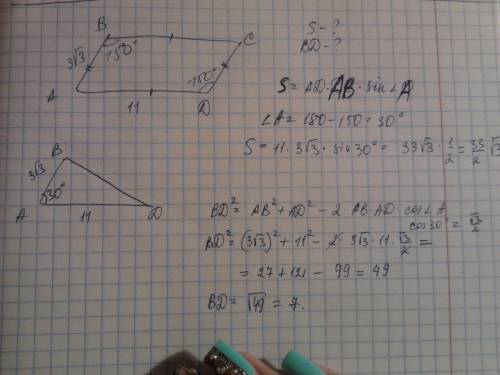 B
C
3√3
150°
150°
A
D
11
S - ?
BD - ?
S = AD · AB · sin∠A
∠A = 180 - 150 = 30°
S = 11 · 3√3 · sin 30° = 33√3 · 1/2 = 33/2 √3
B
3√3
30°
A
11
D
BD² = AB² + AD² - 2 · AB · AD · cos∠A
cos 30° = √3/2
BD² = (3√3)² + 11² - 2 · 3√3 · 11 · √3/2 =
= 27 + 121 - 99 = 49
BD = √49 = 7.